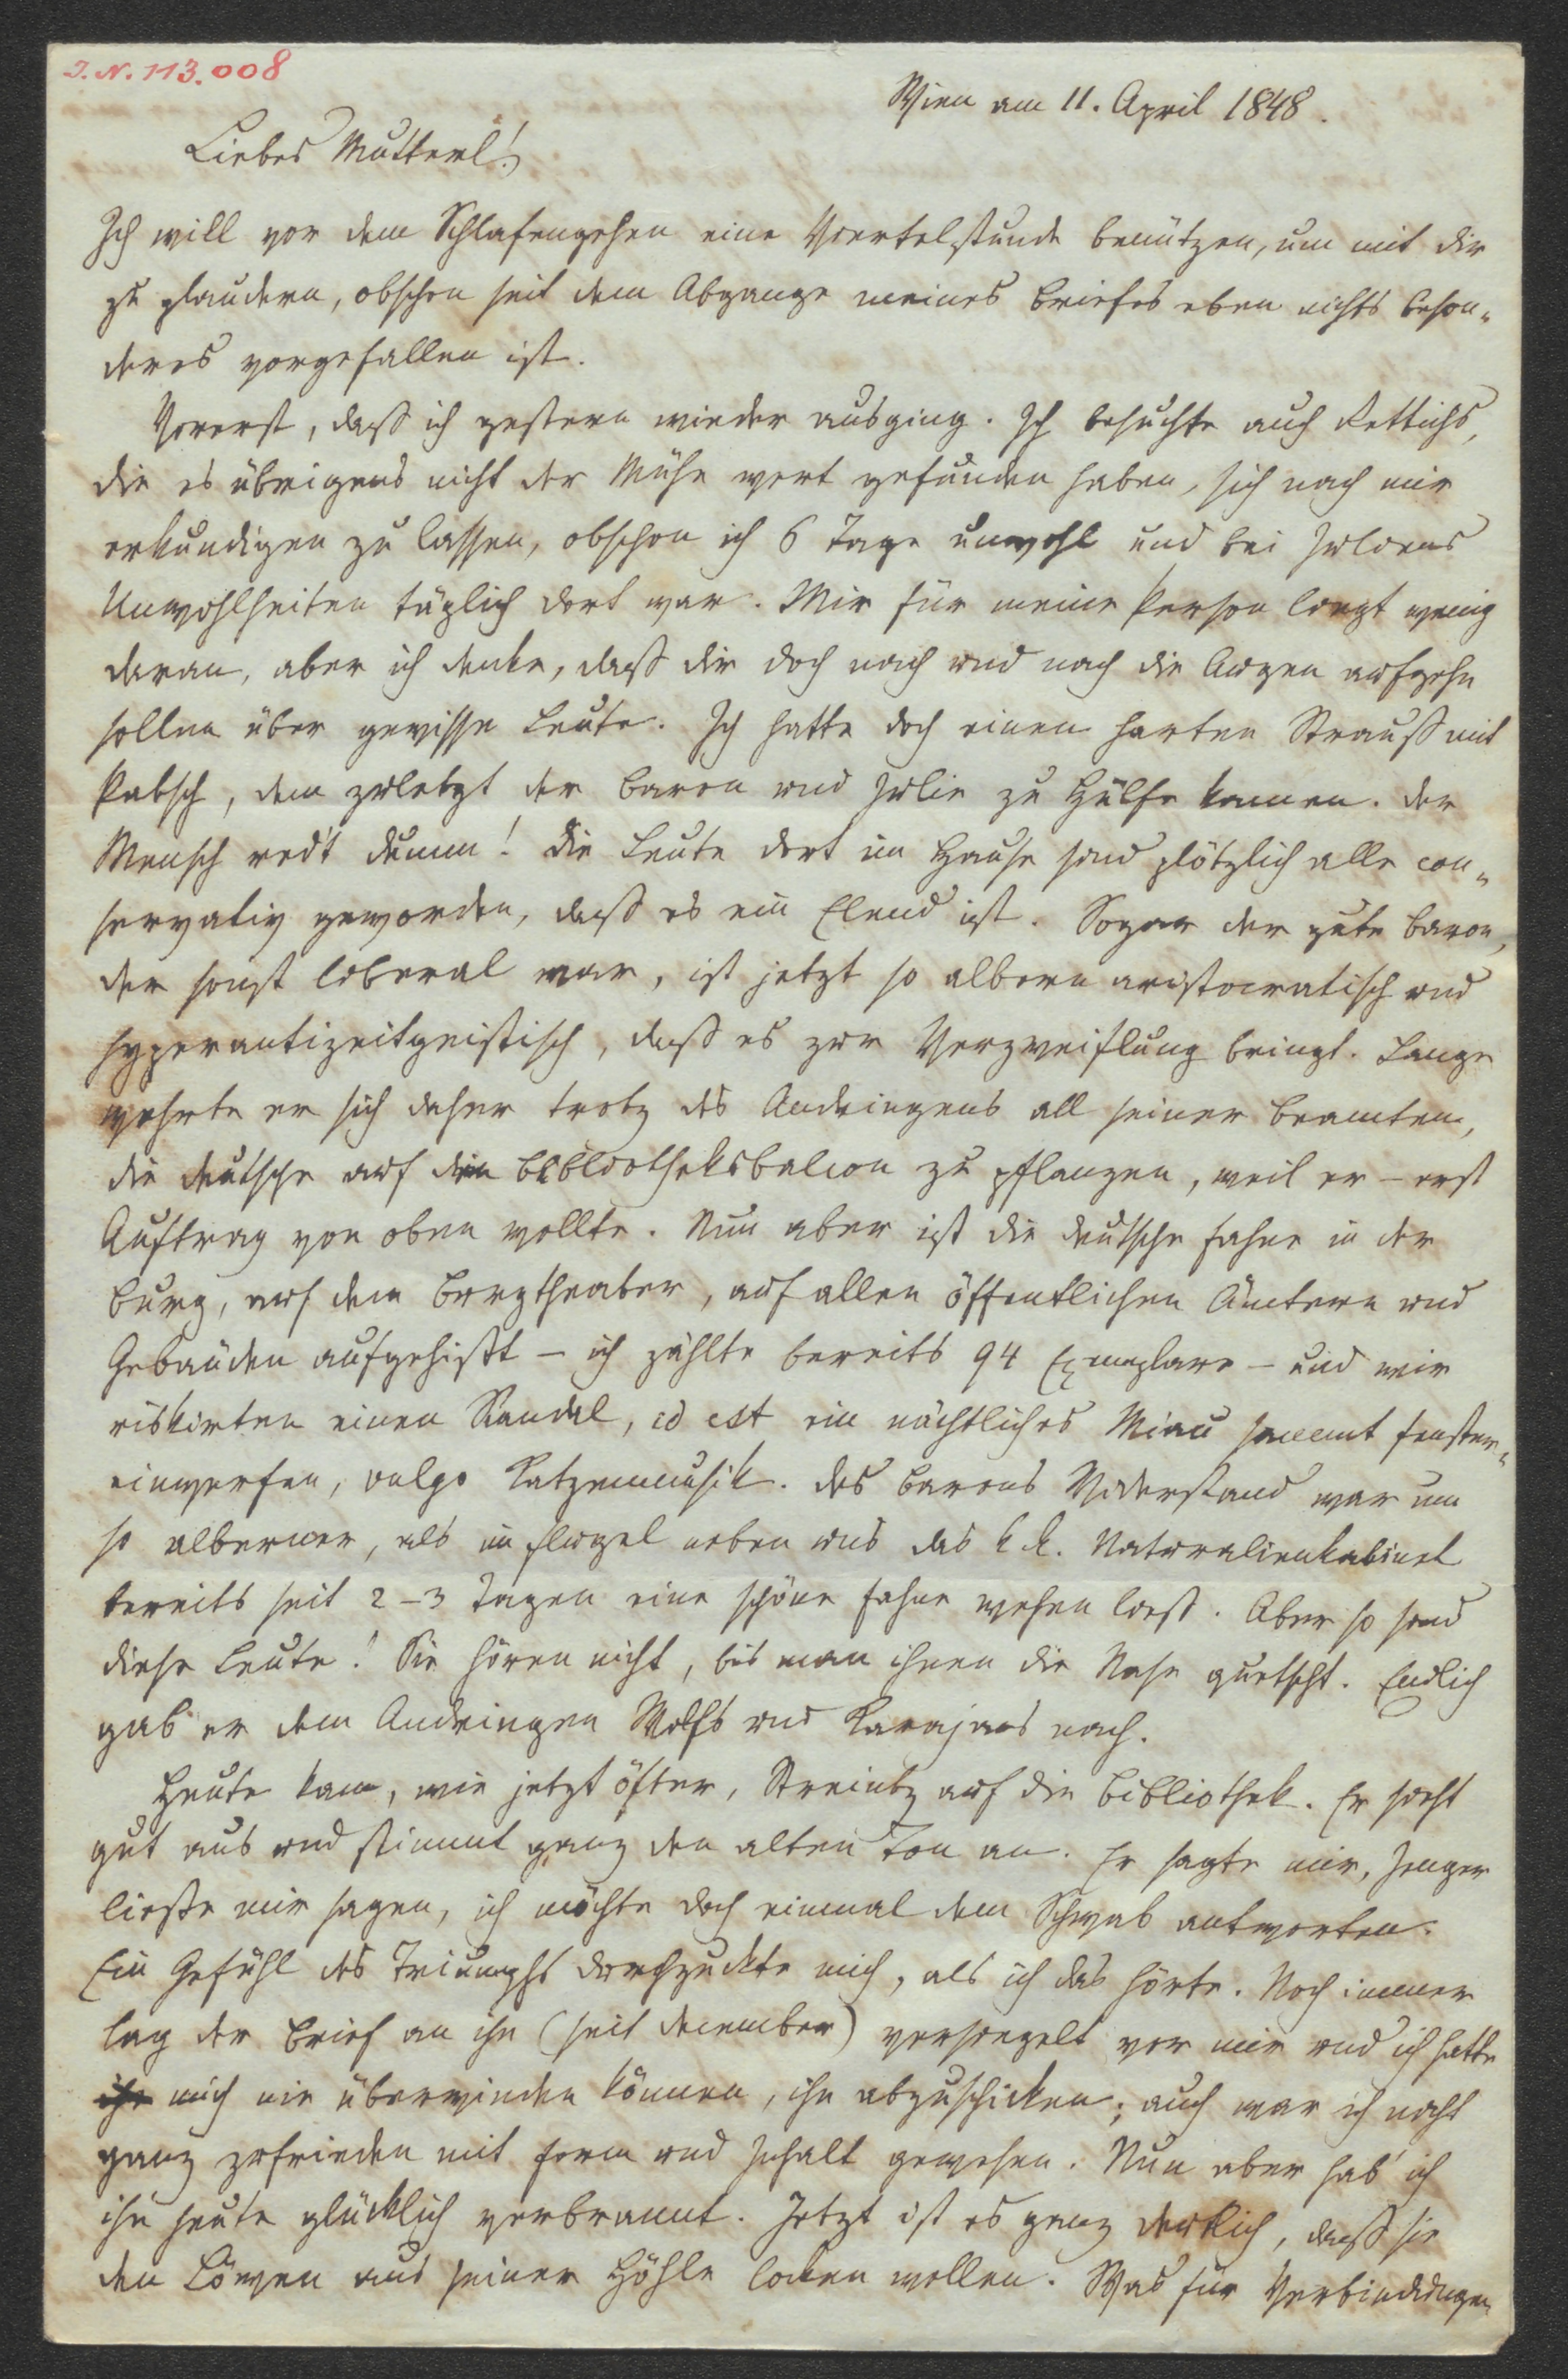 I. N. 113.008
Wien am 11. April 1848.
Liebes Mutterl!
Ich will vor dem Schlafengehen eine Viertelstunde benützen, um mit dir
zu plaudern, obschon seit dem Abgange meines Briefes eben nichts beson-
deres vorgefallen ist.
Vorerst, daß ich gestern wieder ausging. Ich besuchte auch Rettichs,
die es übrigens nicht der Mühe wert gefunden haben, sich nach mir
erkundigen zu lassen, obschon ich 6 Tage unwohl und bei Juliens
Unwohlheiten täglich dort war. Mir für meine Person liegt wenig
daran, aber ich denke, daß dir doch nach und nach die Augen aufgehn
sollen über gewisse Leute. Ich hatte doch einen harten Strauß mit
Pabsch, dem zuletzt der Baron und Julie zu Hülfe kamen. Der
Mensch red't dumm! Die Leute dort im Hause sind plötzlich alle con-
servativ geworden, daß es ein Elend ist. Sogar der gute Baron,
der sonst liberal war, ist jetzt so albern aristocratisch und
hyperantizeitgeistisch, daß es zur Verzweiflung bringt. Lange
wehrte er sich daher trotz des Andringens all seiner Beamten,
die deutsche auf den Bibliotheksbalcon zu pflanzen, weil er – erst
Auftrag von oben wollte. Nun aber ist die deutsche Fahne in der
Burg, auf dem Burgtheater, auf allen öffentlichen Ämtern und
Gebäuden aufgehißt – ich zählte bereits 94 Exemplare – und wir
riskirten einen Skandal, id est ein nächtliches Miau sammt Fenster-
einwerfen, vulgo Katzenmusik. Des Barons Widerstand war um
so alberner, als im Flügel neben uns das k. k. Naturalienkabinet
bereits seit 2–3 Tagen eine schöne Fahne wehen ließ. Aber so sind
diese Leute! Sie hören nicht, bis man ihnen die Nase quetscht. Endlich
gab er dem Andringen Wolfs und Karajans nach.
Heute kam, wie jetzt öfter, Streintz auf die Bibliothek. Er sieht
gut aus und stimmt ganz den alten Ton an. Er sagte mir, Jenger
ließe mir sagen, ich möchte doch einmal dem Schwab antworten.
Ein Gefühl des Triumphs durchzuckte mich, als ich das hörte. Noch immer
lag der Brief an ihn (seit December) versiegelt vor mir und ich hatte
mich nie überwinden können, ihn abzuschicken; auch war ich nicht
ganz zufrieden mit Form und Inhalt gewesen. Nun aber hab' ich
ihn heute glücklich verbrannt. Jetzt ist es ganz deutlich, daß sie
den Löwen aus seiner Höhle locken wollen. Was für Verbindungen